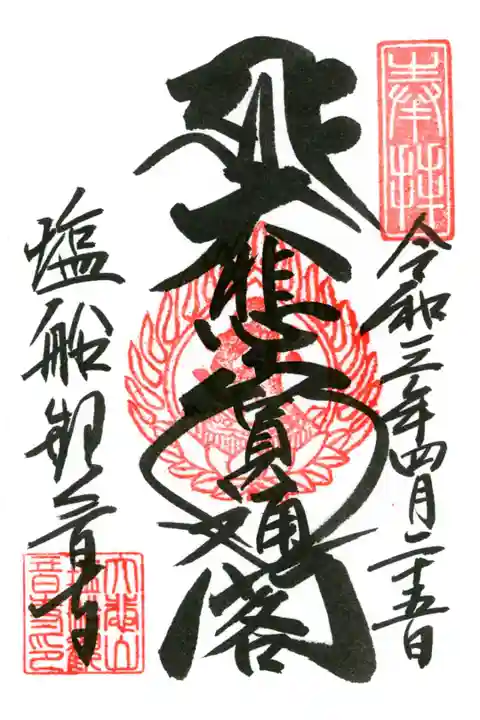 奉拝
令和三年四月二十五日
大悲圓通閣
塩船観音寺
大悲山
塩船観
音寺印